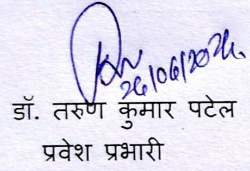 26/06/2024.
डॉ. तरुण कुमार पटेल
प्रवेश प्रभारी